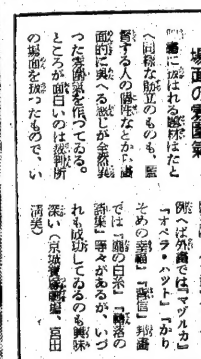 場面の雰圍氣
映畫に扱はれる題材はたと
へ同様な筋立のものも、監
督する人の個性などから畫
面的に與へる感じが全然異
つた雰圍氣を作つてゐる。
ところが面白いのは裁判所
の場面を扱つたもので、い
例へば外畫では『マヅルカ』
『オペラ・ハット』『かり
そめの幸福』『背信』邦畫
では『瀧の白糸』『轉落の
詩集』等々があるが、いづ
れも成功してゐるのも興味
深い（京城寶塚劇場、宮田
清美）